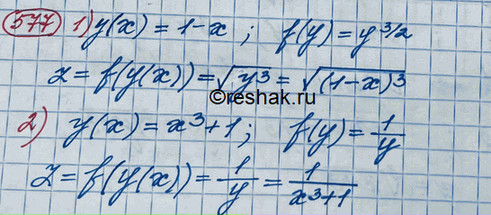 577 1) y(x) = 1-x ; f(y) = y^3/2
z = f(y(x)) = √y³ = √(1-x)³
©reshak.ru
2) y(x) = x³+1 ; f(y) = 1/y
z = f(y(x)) = 1/y = 1/(x³+1)